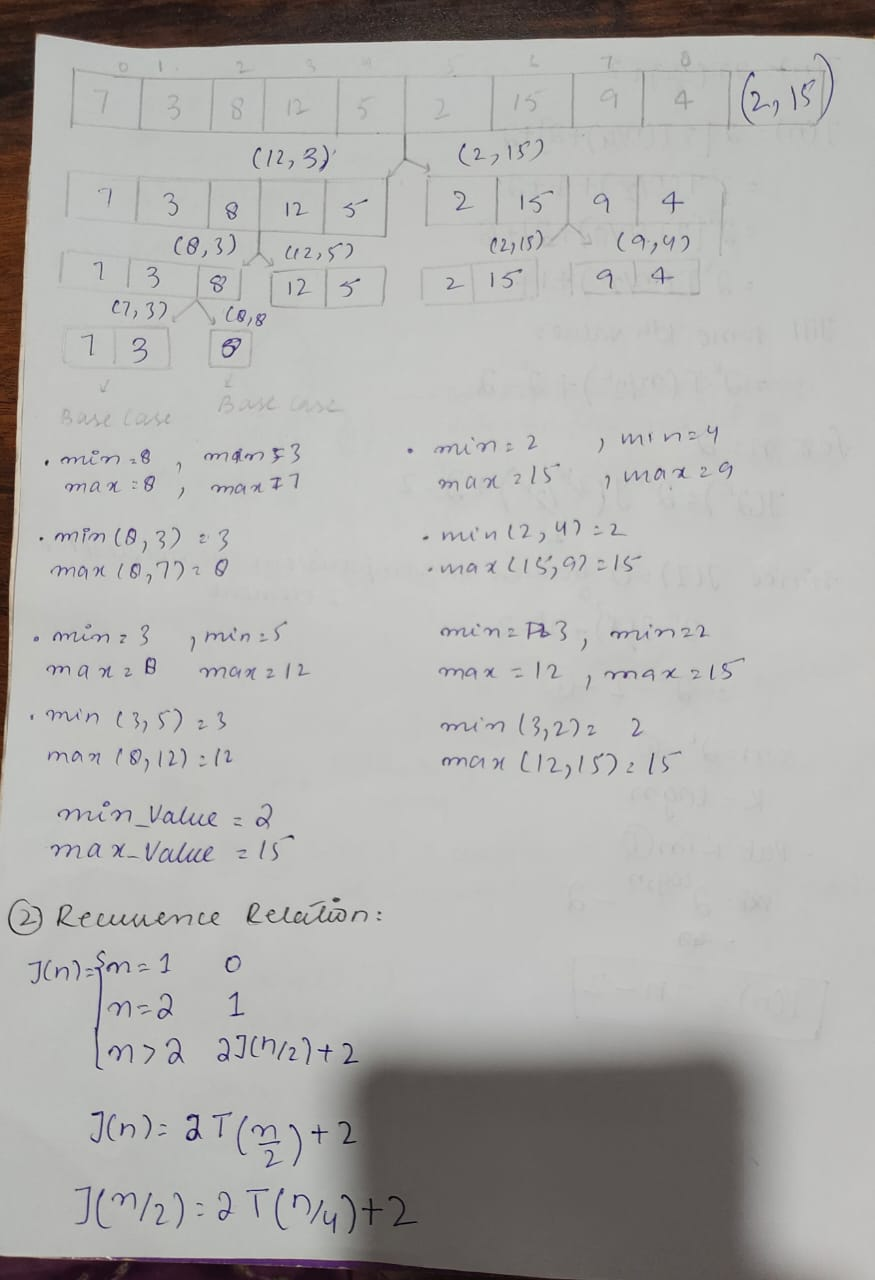 0 1 2 3 4 5 6 7 8
7 3 8 12 5 2 15 9 4 (2,15)
(12,3) (2,15)
7 3 8 12 5 2 15 9 4
(8,3) (12,5) (2,15) (9,4)
7 3 8 12 5 2 15 9 4
(7,3) (8,8
7 3 8
Base case Base case
. min=8 , min=3
max=8 , max=7
. min(8,3)=3
max(8,7)=8
. min=3 , min=5
max=8 max=12
. min(3,5)=3
max(8,12)=12
min_value=2
max_value=15
. min=2 , min=4
max=15 , max=9
. min(2,4)=2
. max(15,9)=15
min=3, min=2
max=12 , max=15
min(3,2)= 2
max(12,15)=15
② Recurrence Relation:
T(n)={n=1 0
n=2 1
n>2 2T(n/2)+2
T(n)=2T(n/2)+2
T(n/2)=2T(n/4)+2